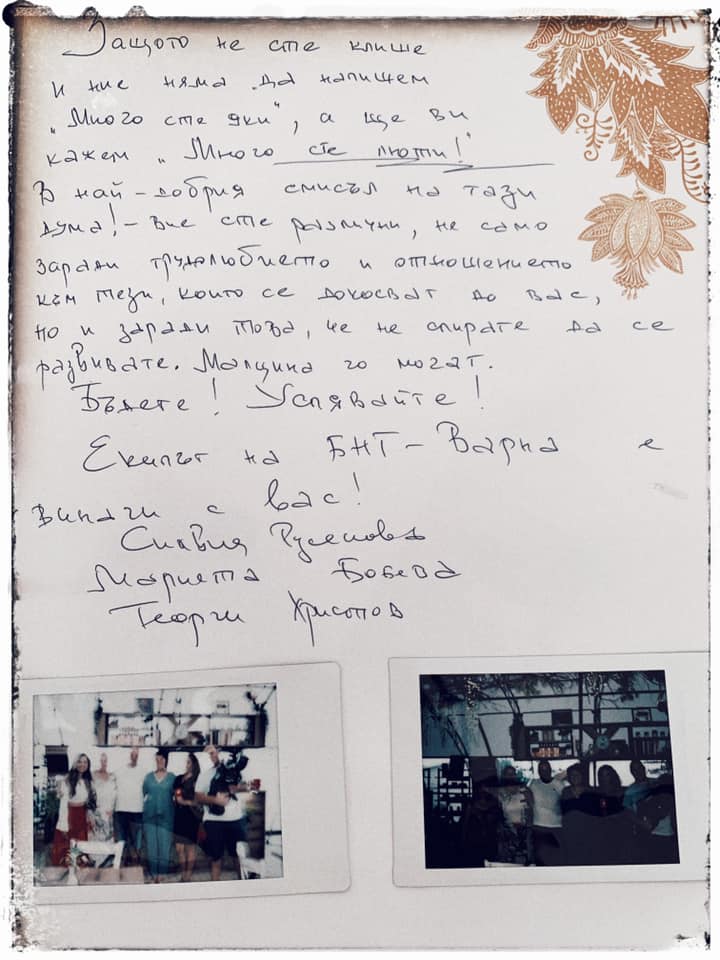 Защото не сте клише
и ние няма да напишем
„Много сте яки", а ще ви
кажем „Много сте люти!"
В най-добрия смисъл на тази
дума! - Вие сте различни, не само
заради трудолюбието и отношението
към тези, които се докосват до вас,
но и заради това, че не спирате да се
развивате. Малцина го могат.
Бъдете! Успявайте!
Екипът на БНТ - Варна е
винаги с вас!
Силвия Русенова
Мариета Бобева
Георги Христов